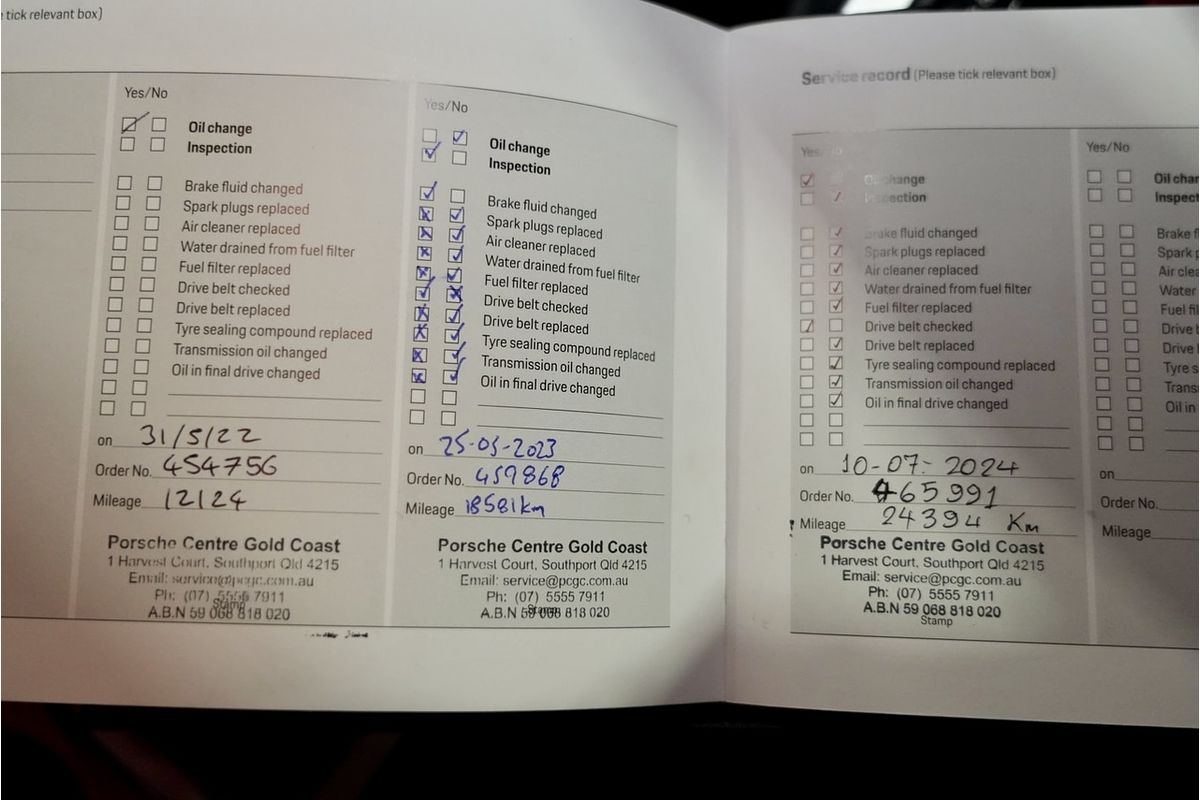 tick relevant box)
Yes/No
Oil change
Inspection
Brake fluid changed
Spark plugs replaced
Air cleaner replaced
Water drained from fuel filter
Fuel filter replaced
Drive belt checked
Drive belt replaced
Tyre sealing compound replaced
Transmission oil changed
Oil in final drive changed
on 31/5/22
Order No. 454756
Mileage 12124
Porsche Centre Gold Coast
1 Harvest Court, Southport Qld 4215
Email: service@pcgc.com.au
Ph: (07) 5556 7911
Stamp
A.B.N 59 068 818 020
Yes/No
Oil change
Inspection
Brake fluid changed
Spark plugs replaced
Air cleaner replaced
Water drained from fuel filter
Fuel filter replaced
Drive belt checked
Drive belt replaced
Tyre sealing compound replaced
Transmission oil changed
Oil in final drive changed
on 25-05-2023
Order No. 459868
Mileage 18581km
Porsche Centre Gold Coast
1 Harvest Court, Southport Qld 4215
Email: service@pcgc.com.au
Ph: (07) 5555 7911
Stamp
A.B.N 59 068 818 020
Service record (Please tick relevant box)
Yes/No
Oil change
Inspection
Brake fluid changed
Spark plugs replaced
Air cleaner replaced
Water drained from fuel filter
Fuel filter replaced
Drive belt checked
Drive belt replaced
Tyre sealing compound replaced
Transmission oil changed
Oil in final drive changed
on 10-07-2024
Order No. 465991
Mileage 24394 Km
Porsche Centre Gold Coast
1 Harvest Court, Southport Qld 4215
Email: service@pcgc.com.au
Ph: (07) 5555 7911
A.B.N 59 068 818 020
Stamp
Yes/No
Oil
Inspect
Brake
Spark
Air
Water
Fuel
Drive
Drive
Tyre
Oil in
on
Order No.
Mileage